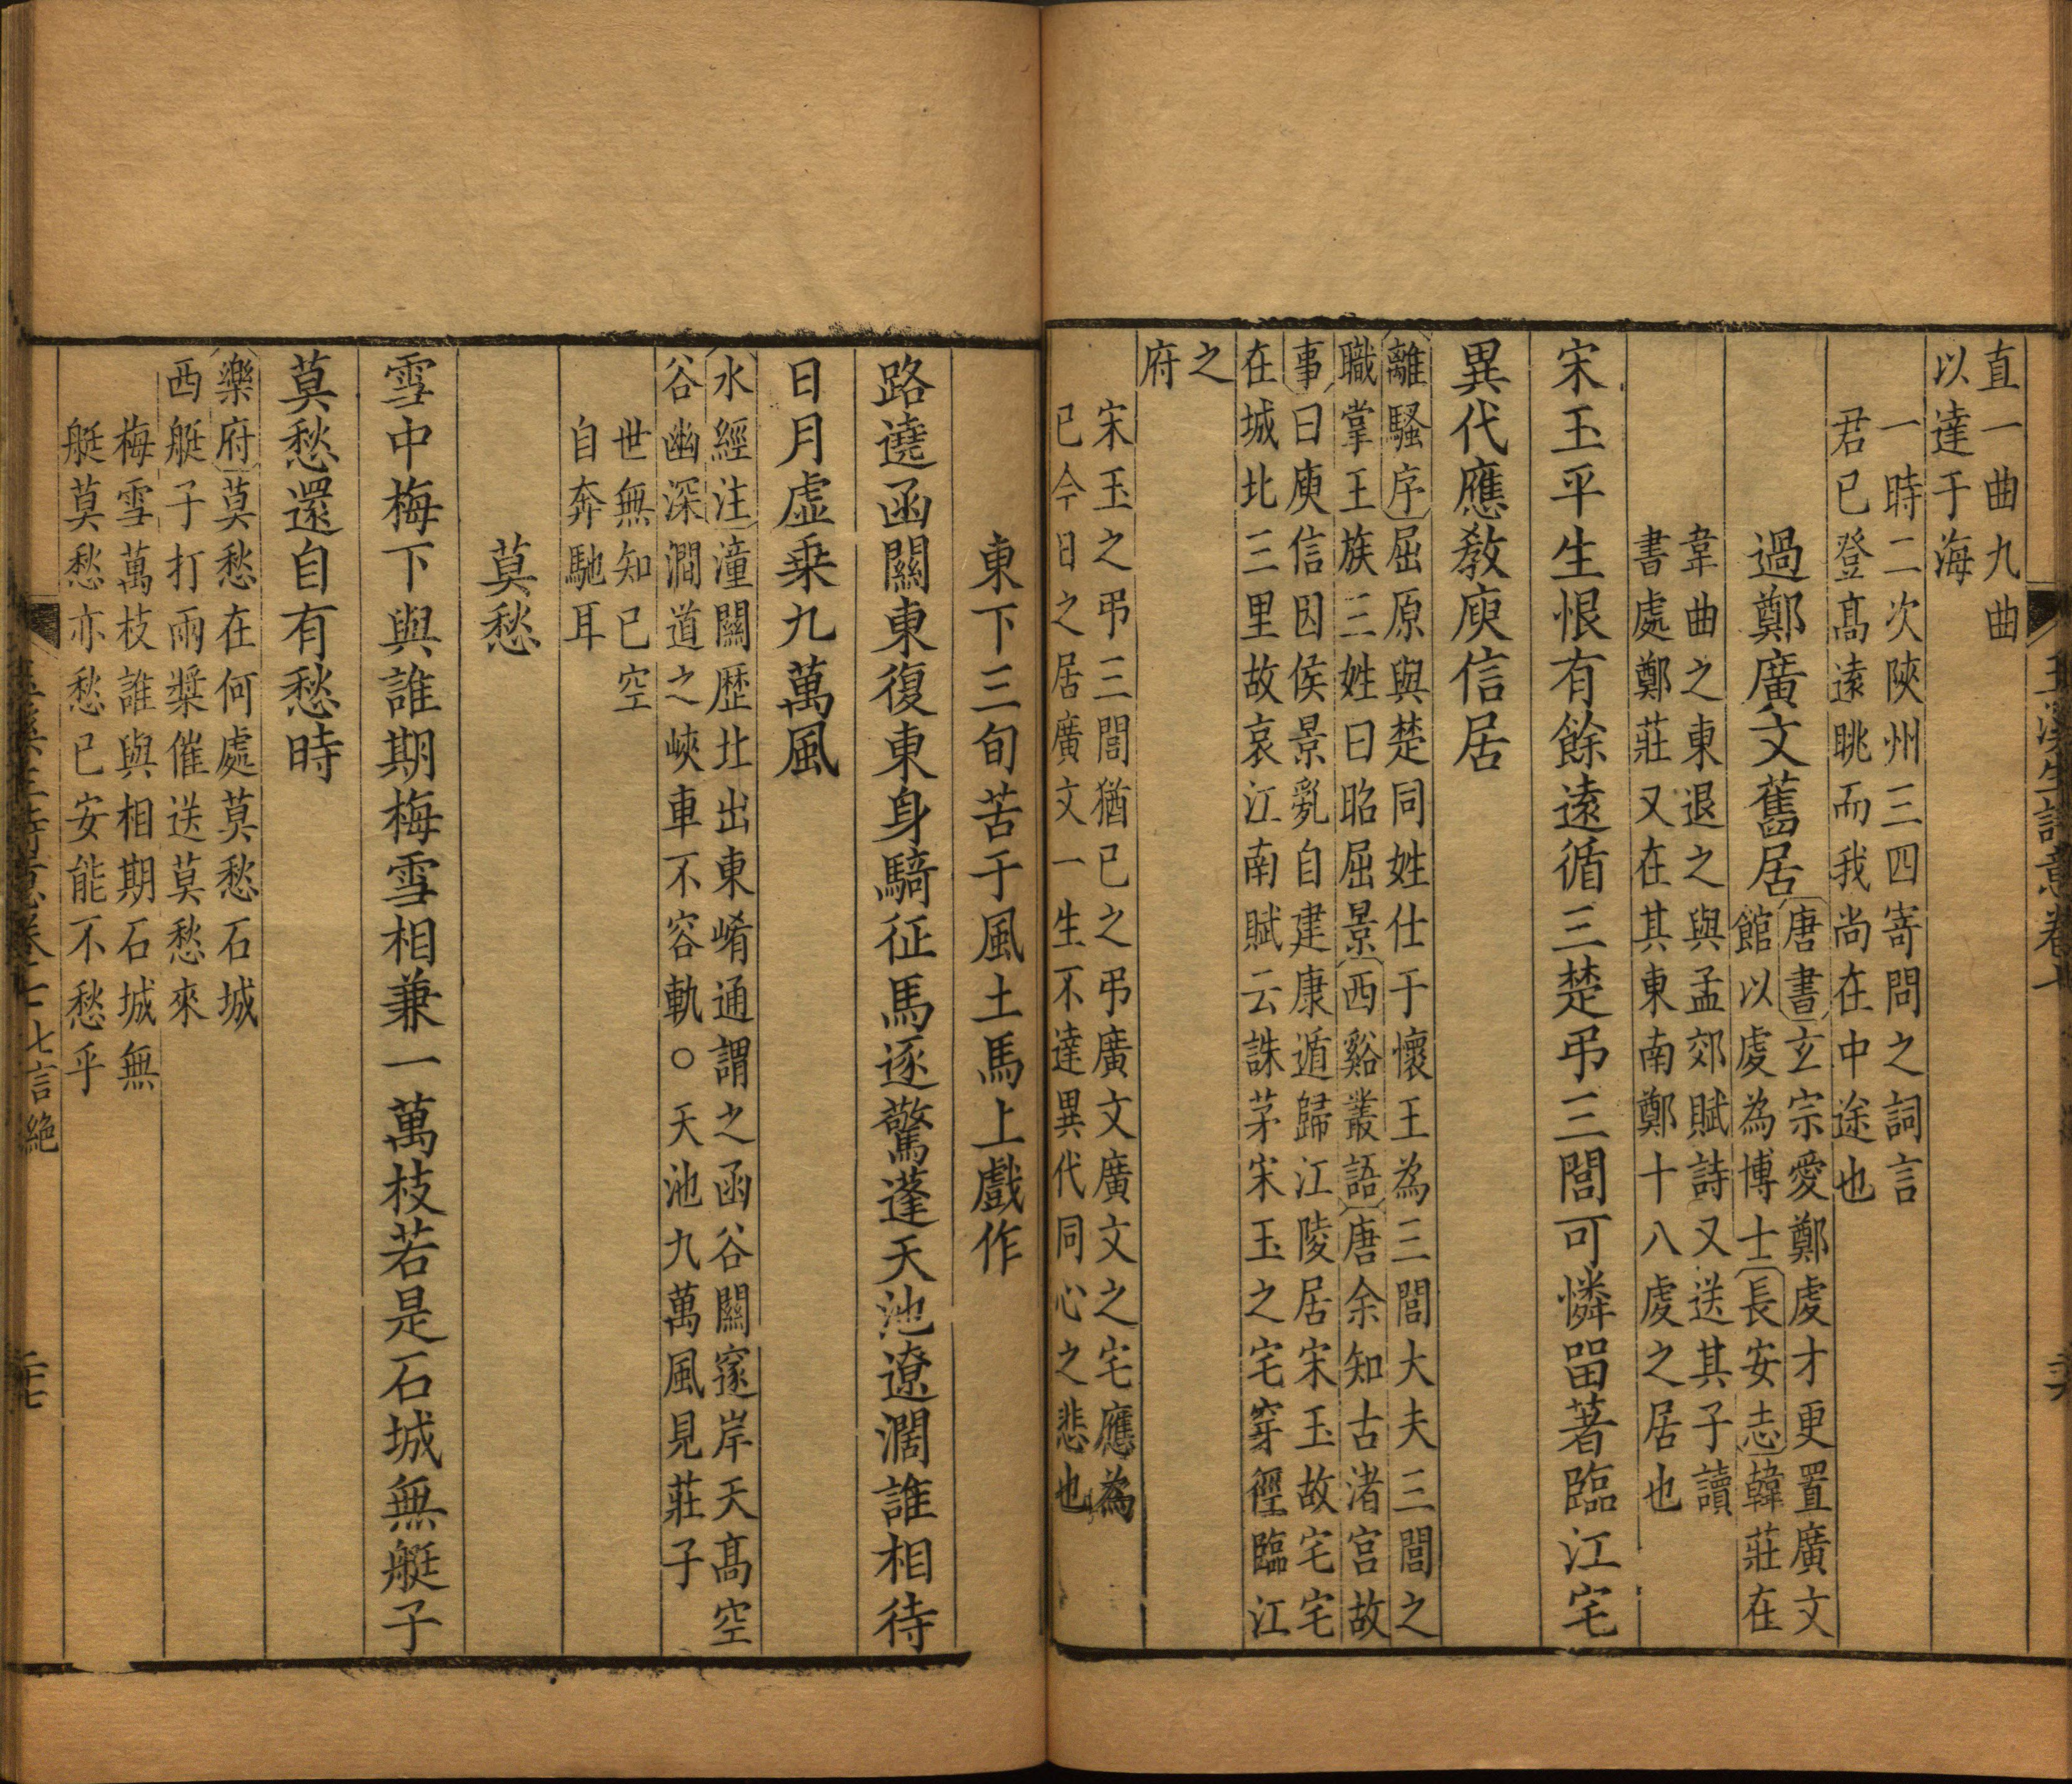 直一曲九曲
以達于海
一時二次陝州三四寄問之詞言
君已登髙遠眺而我尚在中途也
過鄭廣文舊居
唐書玄宗愛鄭虔才更置廣文
館以虔為博士長安志韓莊在
韋曲之東退之與孟郊賦詩又送其子讀
書處鄭莊又在其東南鄭十八虔之居也
宋玉平生恨有餘遠循三楚弔三閭可憐畱著臨江宅
異代應敎庾信居
離騷序屈原與楚同姓仕于懷王為三閭大夫三閭之
職掌王族三姓曰昭屈景西谿叢語唐余知古渚宮故
事曰庾信因侯景亂自建康遁歸江陵居宋玉故宅宅
在城北三里故哀江南賦云誅茅宋玉之宅穿徑臨江
之
府
宋玉之弔三閭猶已之弔廣文廣文之宅應為
已今日之居廣文一生不達異代同心之悲也
東下三旬苦于風土馬上戲作
路遶函關東復東身騎征馬逐驚蓬天池遼濶誰相待
日月虛乘九萬風
水經注潼關歴北出東崤通謂之函谷關邃岸天髙空
谷幽深澗道之峽車不容軌○天池九萬風見莊子
世無知已空
自奔馳耳
莫愁
雪中梅下與誰期梅雪相兼一萬枝若是石城無艇子
莫愁還自有愁時
樂府莫愁在何處莫愁石城
西艇子打兩槳催送莫愁來
梅雪萬枝誰與相期石城無
艇莫愁亦愁已安能不愁乎
七言絶